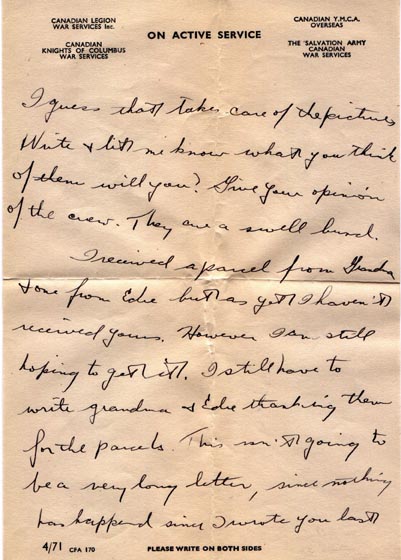 CANADIAN LEGION
WAR SERVICES Inc.
CANADIAN
KNIGHTS OF COLUMBUS
WAR SERVICES
ON ACTIVE SERVICE
CANADIAN Y.M.C.A.
OVERSEAS
THE SALVATION ARMY
CANADIAN
WAR SERVICES
I guess that takes care of the pictures
Write & let me know what you think
of them will you? Give your opinion
of the crew. They are a swell bunch.
I received a parcel from Grandma
& one from Edie but as yet I haven't
received yours. However I am still
hoping to get it. I still have to
write grandma & Edie thanking them
for the parcels. This isn't going to
be a very long letter, since nothing
has happend since I wrote you last
4/71 CFA 170
PLEASE WRITE ON BOTH SIDES